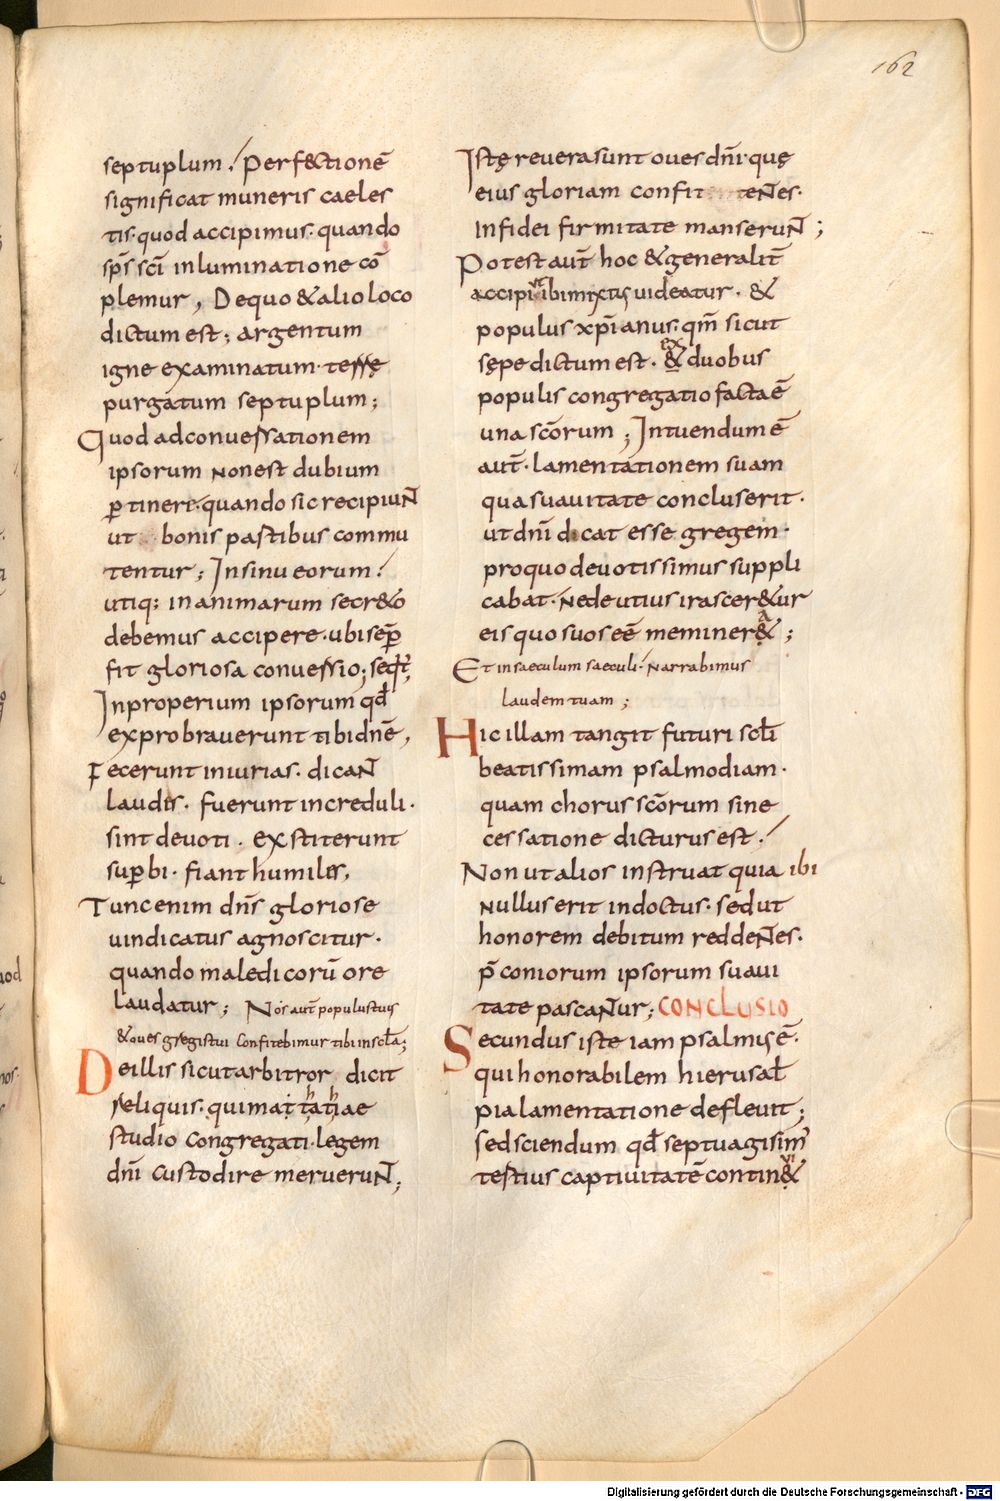 162
septuplum. Perfectionē
significat muneris caeles
tis. quod accipimus. quando
sp̄s sc̄i inluminatione cō
plemur, De quo & alio loco
dictum est; argentum
igne examinatum. terrę
purgatum septuplum;
Quod ad conuersationem
ipsorum non est dubium
ꝑtinere. quando sic recipiuNT
ut bonis pastibus commu
tentur; In sinu eorum.
utiq; in animarum secr&o
debemus accipere. ubi semꝑ
fit gloriosa conuersio; seqt̄.
Inproperium ipsorum qd̄
exprobrauerunt tibi dn̄e,
Fecerunt iniurias. dicaNT
laudes. fuerunt increduli.
sint deuoti. exstiterunt
suꝑbi. fiant humiles,
Tunc enim dn̄s gloriose
uindicatus agnoscitur.
quando maledicorū ore
laudatur; Nos aut̄ populus tuus
& oues gregis tui confitebimur tibi in scl̄a;
De illis sicut arbitror dicit
reliquis. qui mattathiae
studio congregati. legem
dn̄i custodire merueruNT;
Istę reuera sunt oues dn̄i. quę
eius gloriam confitteNTes.
In fidei firmitate manseruNT;
Potest aut̄ hoc & generalit̄
accipi ut ibi mixtis uideatur. &
populus xp̄ianus. qm̄ sicut
sępe dictum est. ex duobus
populis congregatio facta ē
una sc̄orum; Intuendum ē
aut̄. lamentationem suam
qua suauitate concluserit.
ut dn̄i dicat esse gregem.
pro quo deuotissimus suppli
cabat. Ne deutius irascer&ur
eis quo suos eē meminer&;
Et in saeculum saeculi. Narrabimus
laudem tuam;
Hic illam tangit futuri scl̄i
beatissimam psalmodiam.
quam chorus sc̄orum sine
cessatione dicturus est.
Non ut alios instruat quia ibi
nullus erit indoctus. sed ut
honorem debitum reddeNTes.
p̄coniorum ipsorum suaui
tate pascaNTur; CONCLUSIO
Secundus iste iam psalmus ē.
qui honorabilem hierusal̄
pia lamentatione defleuit;
sed sciendum qd̄ septuagisim
testius captiuitatē contin&
Digitalisierung gefördert durch die Deutsche Forschungsgemeinschaft - DFG